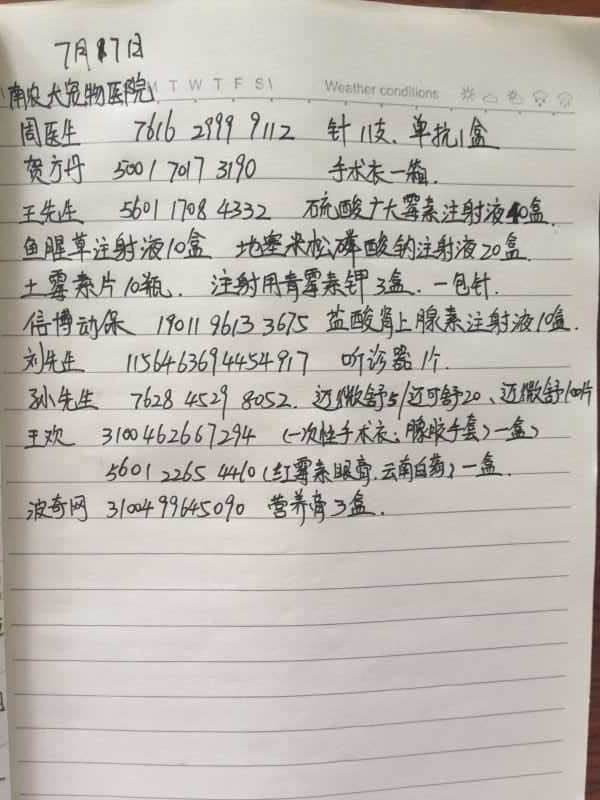 7月17日
南农大宠物医院 M T W T F S\ Weather conditions
周医生 7616 2999 9112 针11支、单抗1盒
贺方丹 5001 7017 3190 手术衣一箱.
王先生 5601 1708 4332 硫酸庆大霉素注射液40盒.
鱼腥草注射液10盒 地塞米松磷酸钠注射液20盒.
土霉素片10瓶. 注射用青霉素钾3盒. 一包针.
信博动保 19011 9613 3675 盐酸肾上腺素注射液10盒.
刘先生 1156463694454917 听诊器1个.
孙先生 7628 4529 8052. 迈微舒5/迈可舒20、迈微舒100片
王欢 3100462667294 (一次性手术衣;橡胶手套)一盒)
5601 2265 4460 (红霉素眼膏.云南白药)一盒.
波奇网 3100499645090 营养膏3盒.